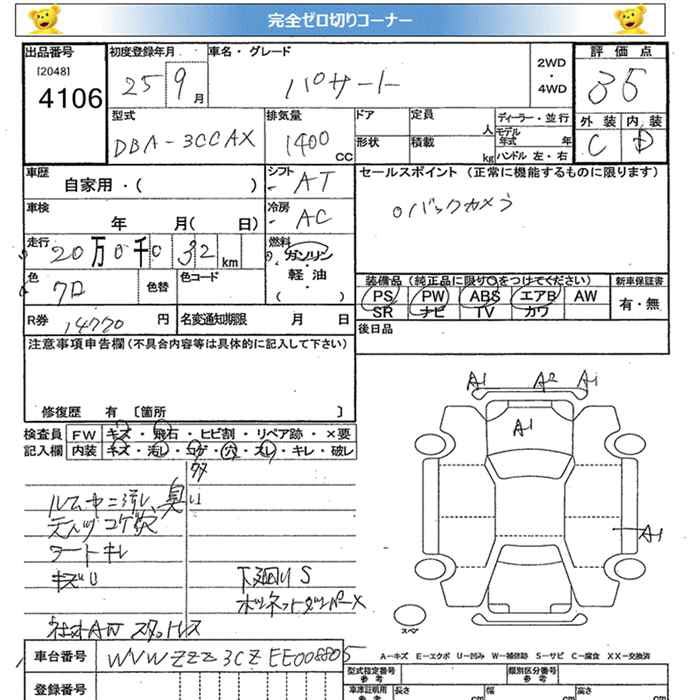 完全ゼロ切りコーナー
出品番号 初度登録年月 車名・グレード 2WD・4WD 評価点
[2048] 4106 25 9月 パサート 35
型式 排気量 ドア 定員 人 ディーラー・並行 外装 内装
DBA-3CCAX 1400CC 形状 積載 kg モデル年式 年 ハンドル 左・右 C D
車歴 自家用・( ) シフト AT セールスポイント (正常に機能するものに限ります)
車検 年 月( 日) 冷房 AC ○バックカメラ
走行 20万0千0 32 km 燃料 ガソリン
軽・油
( )
色 色替 色コード 装備品(純正品に限り○をつけてください) 新車保証書
PS PW ABS エアB AW 有・無
SR ナビ TV カワ
R券 14770円 名変通知期限 月 日 後日品
注意事項申告欄(不具合内容等は具体的に記入して下さい)
修復歴 有 〔箇所 〕
検査員記入欄 FW キズ・飛石・ヒビ割・リペア跡・×要
内装 キズ・汚レ・コゲ・穴・スレ・キレ・破レ
臭い
シートキレ
キズU 下廻りS
ボンネットダンパー×
スタットレス
A1 A2 A1
A1
A1
スペア
A-キズ E-エクボ U-凹み W-補修跡 S-サビ C-腐食 XX-交換済
車台番号 WVWZZZ3CZEE008805
型式指定番号 参考 類別区分番号 参考
登録番号 車庫証明用 参考 長さ cm 幅 cm 高さ cm